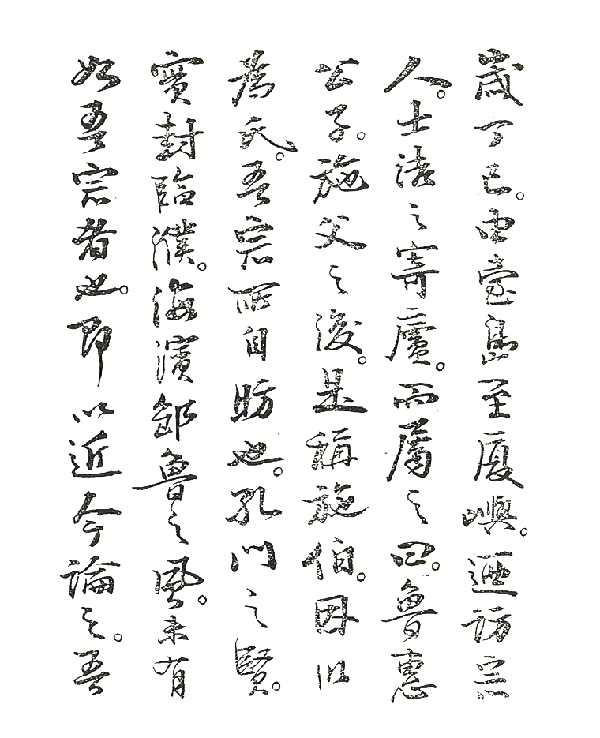 歲丁巳。由臺島至廈嶼。訪宗
人。士洁之寄廬。而屬之曰。魯惠
公子。施父之後。是稱施伯。因以
為氏。吾宗所自昉也。孔門之賢。
實封臨濮。海濱鄒魯之風。未有
如吾宗者也。即以近今論之。吾